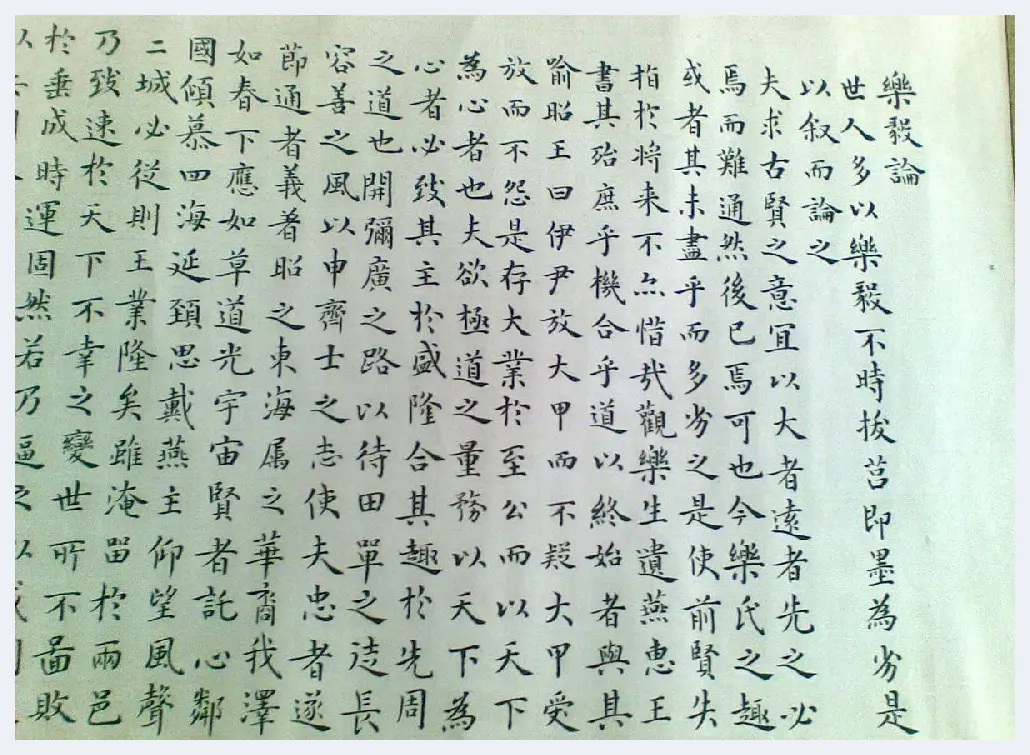 樂毅論
世人多以樂毅不時拔莒即墨為劣是
以叙而論之
夫求古賢之意宜以大者遠者先之必
焉而難通然後已焉可也今樂氏之趣
或者其未盡乎而多劣之是使前賢失
指於將来不亦惜哉觀樂生遺燕惠王
書其殆庶乎機合乎道以終始者與其
喻昭王曰伊尹放大甲而不疑大甲受
放而不怨是存大業於至公而以天下
為心者也夫欲極道之量務以天下為
心者必致其主於盛隆合其趣於先周
之道也開彌廣之路以待田單之徒長
容善之風以申齊士之志使夫忠者遂
節通者義著昭之東海属之華裔我澤
如春下應如草道光宇宙賢者託心鄰
國傾慕四海延頸思戴燕主仰望風聲
二城必從則王業隆矣雖淹留於兩邑
乃致速於天下不幸之變世所不圖敗
於垂成時運固然若乃逼之以
以